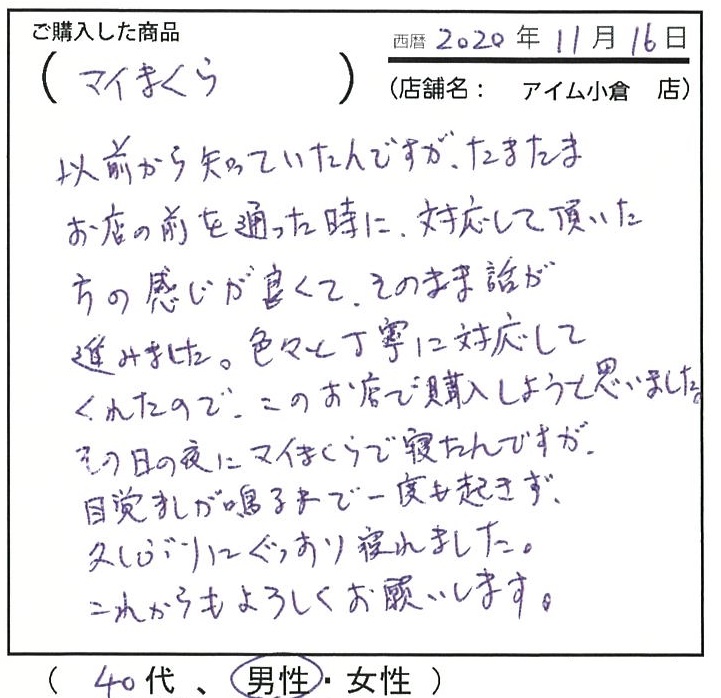 ご購入した商品
(マイまくら)
西暦 2020年11月16日
(店舗名： アイム小倉 店)
以前から知っていたんですが、たまたま
お店の前を通った時に、対応して頂いた
方の感じが良くて、そのまま話が
進みました。色々と丁寧に対応して
くれたので、このお店で購入しようと思いました。
その日の夜にマイまくらで寝たんですが、
目覚ましが鳴るまで一度も起きず、
久しぶりにぐっすり寝れました。
これからもよろしくお願いします。
(40代、男性・女性)